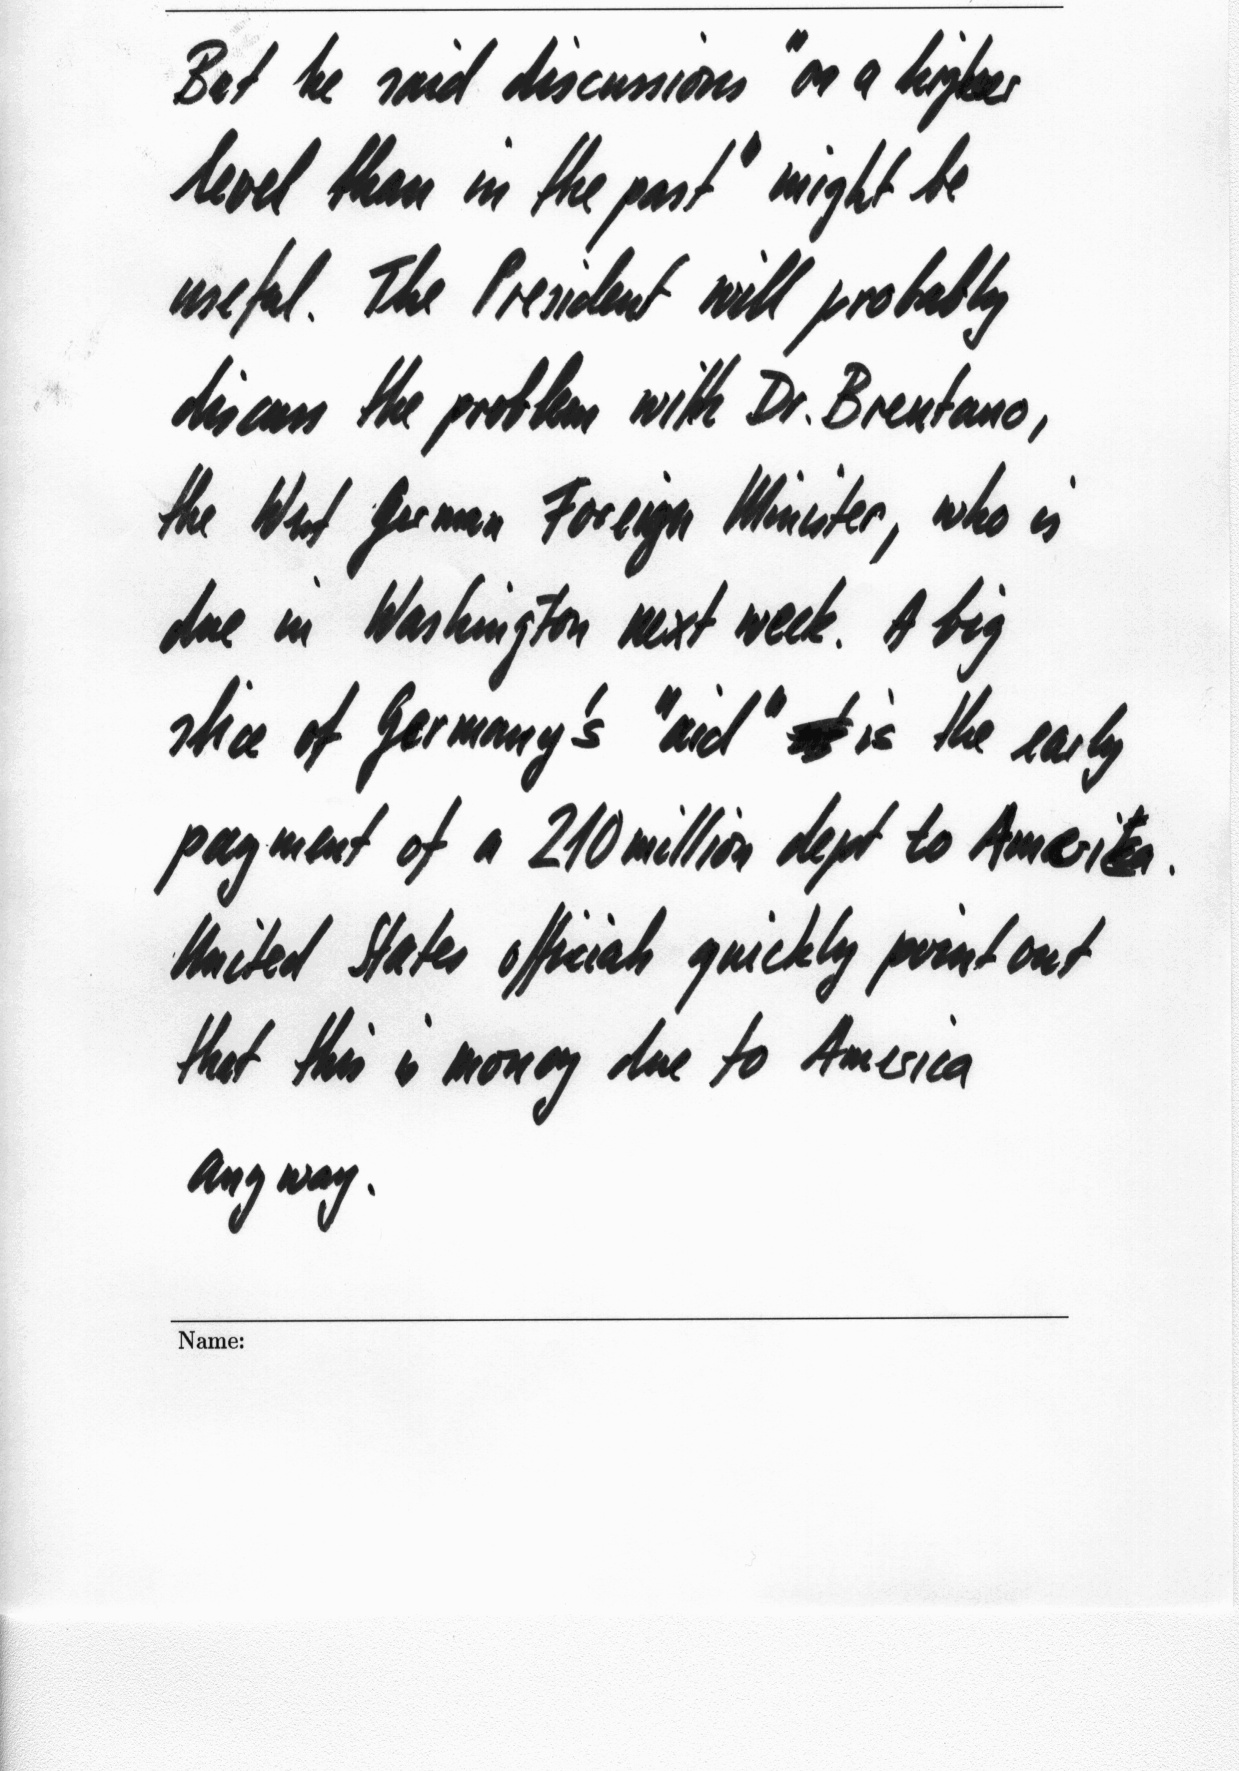 But he said discussions "on a higher
level than in the past" might be
useful. The President will probably
discuss the problem with Dr. Brentano,
the West German Foreign Minister, who is
due in Washington next week. A big
slice of Germany's "aid" is the early
payment of a 210 million dept to America.
United States officials quickly point out
that this is money due to America
anyway.
Name: